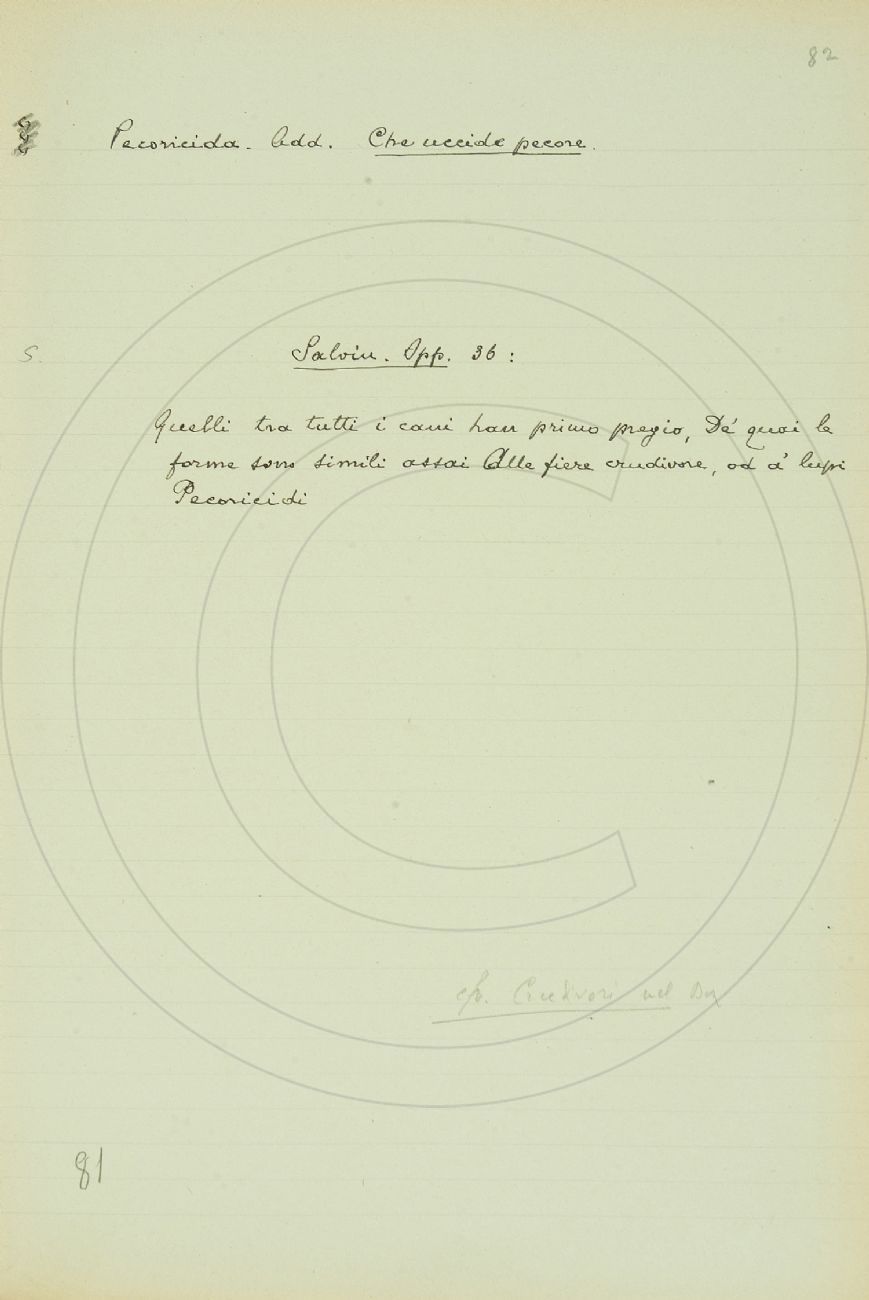 82
Pecoricida. Add. Che uccide pecore.
S. Salvin. Opp. 36 :
Quelli tra tutti i cani han primo pregio, De' quai le
forme sono simili assai Alle fiere crudivore, od a' lupi
Pecoricidi
cfr. Crudivori nel
81